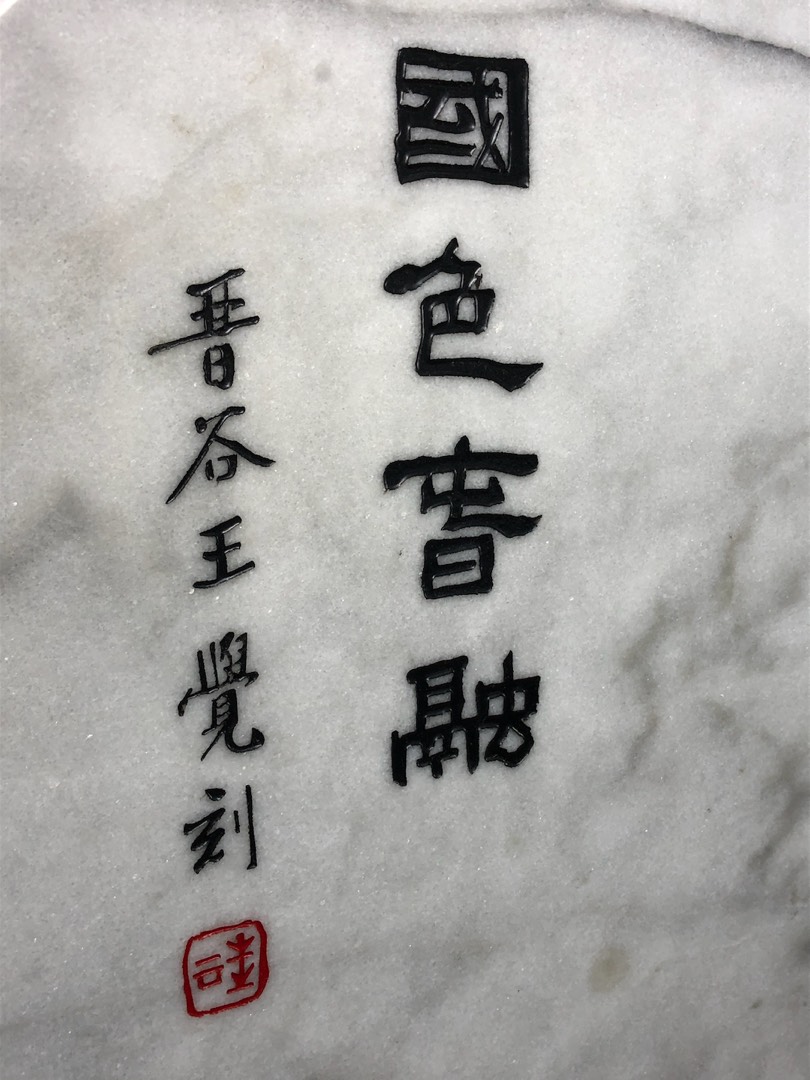 國色旾融
晋谷王覺刻